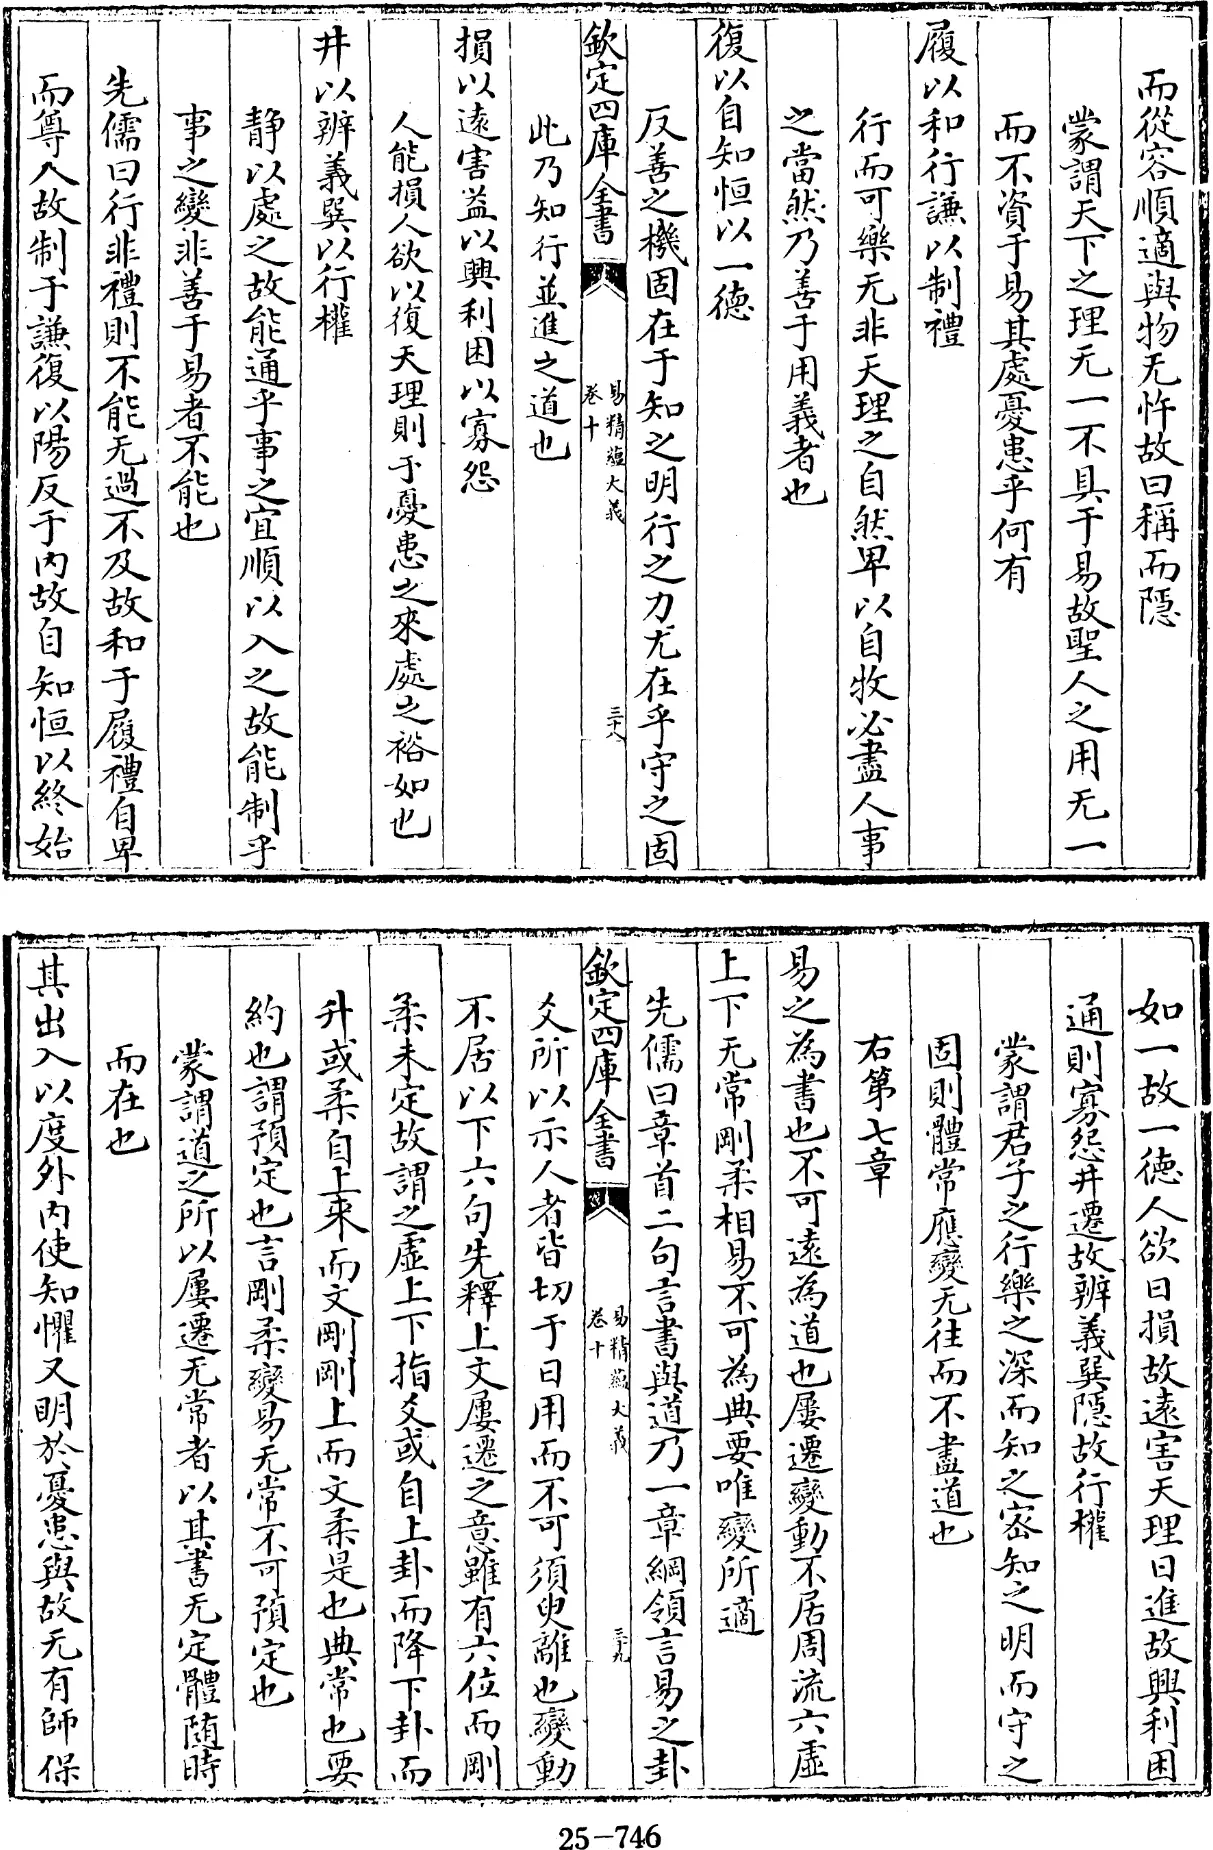 而從容順適與物无忤故曰稱而隱
蒙謂天下之理无一不具于易故聖人之用无一
而不資于易其處憂患乎何有
履以和行謙以制禮
行而可樂无非天理之自然卑以自牧必盡人事
之當然乃善于用義者也
復以自知恒以一德
反善之機固在于知之明行之力尤在乎守之固
欽定四庫全書
易精蘊大義
卷十
三十八
此乃知行並進之道也
損以遠害益以興利困以寡怨
人能損人欲以復天理則于憂患之來處之裕如也
井以辨義巽以行權
靜以處之故能通乎事之宜順以入之故能制乎
事之變非善于易者不能也
先儒曰行非禮則不能无過不及故和于履禮自卑
而尊人故制于謙復以陽反于内故自知恒以終始
如一故一德人欲日損故遠害天理日進故興利困
通則寡怨井遷故辨義巽隱故行權
蒙謂君子之行樂之深而知之密知之明而守之
固則體常應變无往而不盡道也
右第七章
易之為書也不可遠為道也屢遷變動不居周流六虛
上下无常剛柔相易不可為典要唯變所適
先儒曰章首二句言書與道乃一章綱領言易之卦
欽定四庫全書
易精蘊大義
卷十
三十九
爻所以示人者皆切于日用而不可須臾離也變動
不居以下六句先釋上文屢遷之意雖有六位而剛
柔未定故謂之虛上下指爻或自上卦而降下卦而
升或柔自上來而文剛剛上而文柔是也典常也要
約也謂預定也言剛柔變易无常不可預定也
蒙謂道之所以屢遷无常者以其書无定體随時
而在也
其出入以度外内使知懼又明於憂患與故无有師保
25-746